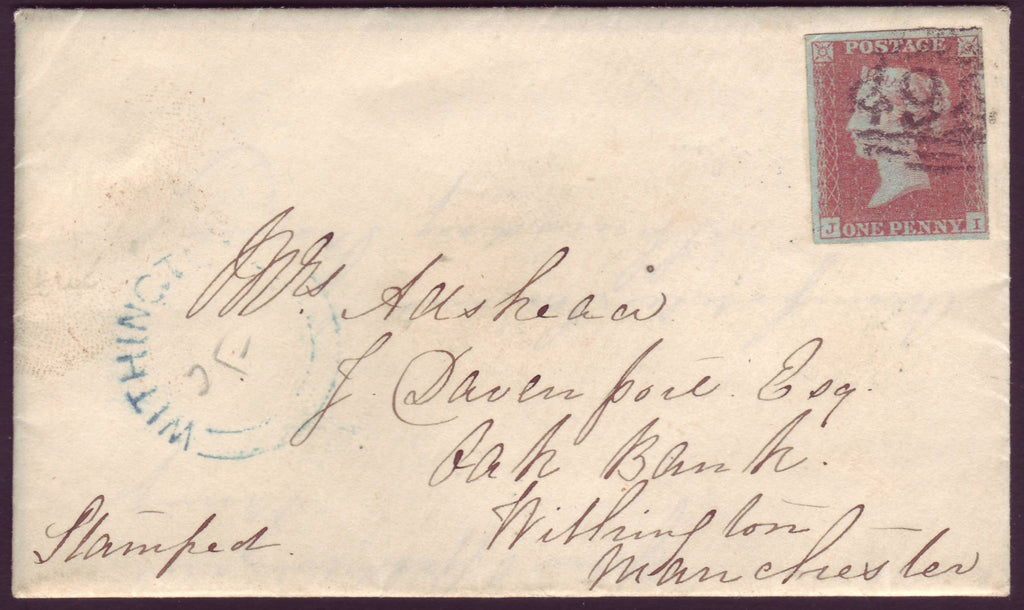 POSTAGE
J ONE PENNY I
Mrs. Adshead
J. Davenport Esq.
Oak Bank.
Withington
Manchester
Stamped.
WITHINGTON